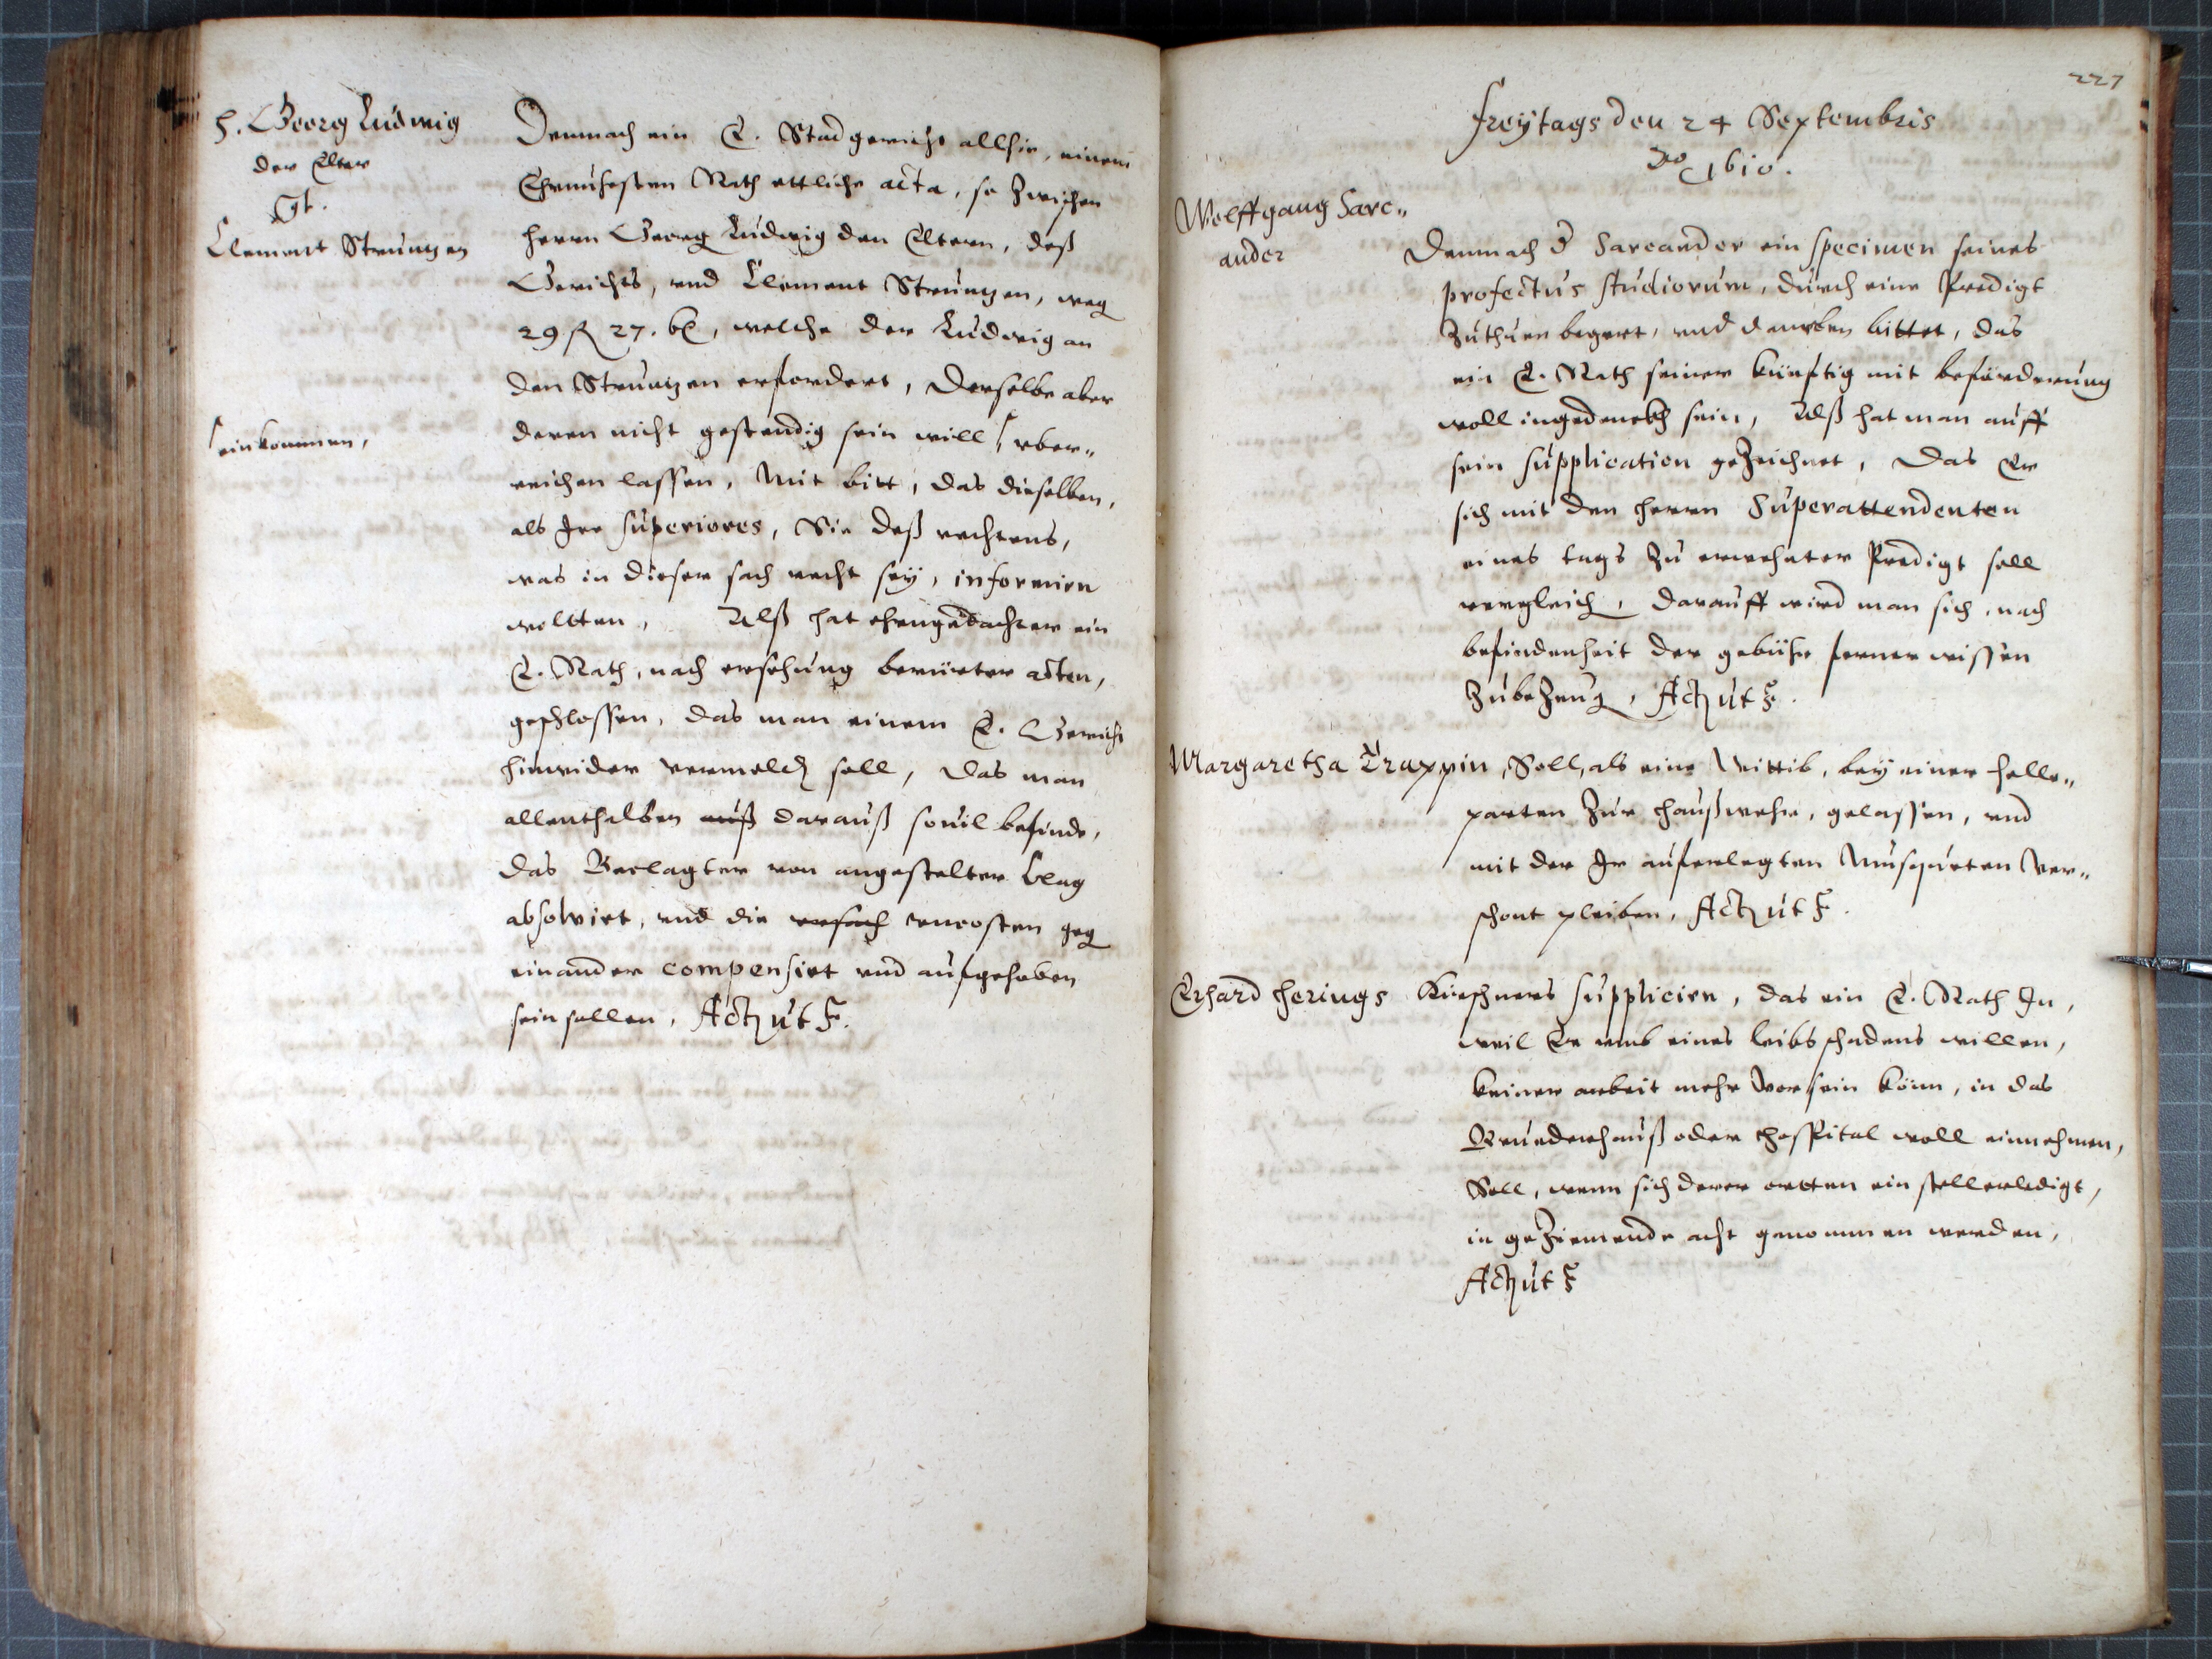 H. Georg Ludwig
der Elter
Ct.
Clement Streuntzen
Demnach ein E. Stadgericht allhie, einem
Ehrnuhesten Rath ettliche acta, so zwischen
herrn Georg Ludwig den Eltern, deß
Gerichts, und Clement Streuntzen, weg
29 fl 27. welche der Ludwig an
den Streuntzen erfordert, Derselbe aber
deren nicht gestendig sein will, vber„
einkommen,
reichen lassen, Mit bitt, das dieselben,
als Ire superiores, Sie deß rechtens,
was in dieser sach recht sey, informirn
woltten, Alß hat ehrngedachter ein
E. Rath, nach ersehung berürter acten,
geschlossen, das man einem E. Gericht
hinwider vermelden soll, das man
allenthalben auß darauß souil befinde,
das Beclagter von angestelter Clag
absolvirt, und die uncosten geg
einander compensirt und aufgehaben
sein sollen, Act ut s.
227
Freytags den 24 Septembris
Ao 1610.
Wolffgang Sarc„
ander
Demnach Sarcander ein specimen seines
profectus studiorum, durch eine Predigt
zuthuen begert, und daneben bittet, das
ein E. Rath seiner künftig mit beförderung
woll ingedenckh sein, Alß hat man auff
sein supplication gezeichnet, Das Er
sich mit den herrn Superattendenten
eines tags zu ermelter Predigt soll
vergleich, darauff wird man sich, nach
befindenheit der gebühr ferner wissen
zubezeug, Act ut s.
Margaretha Trappin, Soll, als eine Wittib, bey einer helle„
parten zur haußwehr, gelassen, und
mit der Ir auferlegten Musqueten ver„
schont pleiben, Act ut s.
Erhard Herings Kirschners suppliciren, das ein E. Rath In,
weil Er umb eines leibsschadens willen,
keiner arbeit mehr vor sein könn, in das
Bruderhauß oder Hospital woll einnehmen,
Soll, wenn sich derer ortten ein stell erledigt,
in geziemende acht genommen werden,
Act ut s